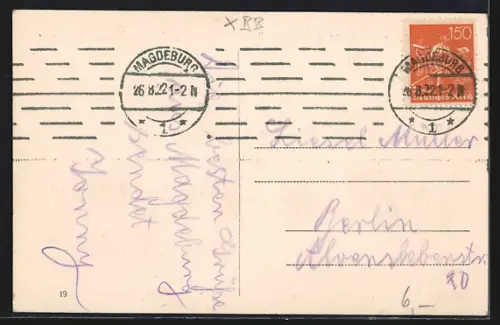 × BB
MAGDEBURG
26.8.22 1-2 N
* 1 *
150
Deutsches Reich
MAGDEBURG
26.8.22 1-2 N
* 1 *
besten Grüße
aus Magdeburg
sendet
Liesel Müller
Berlin
Alvenslebenstr
20
6,-
19